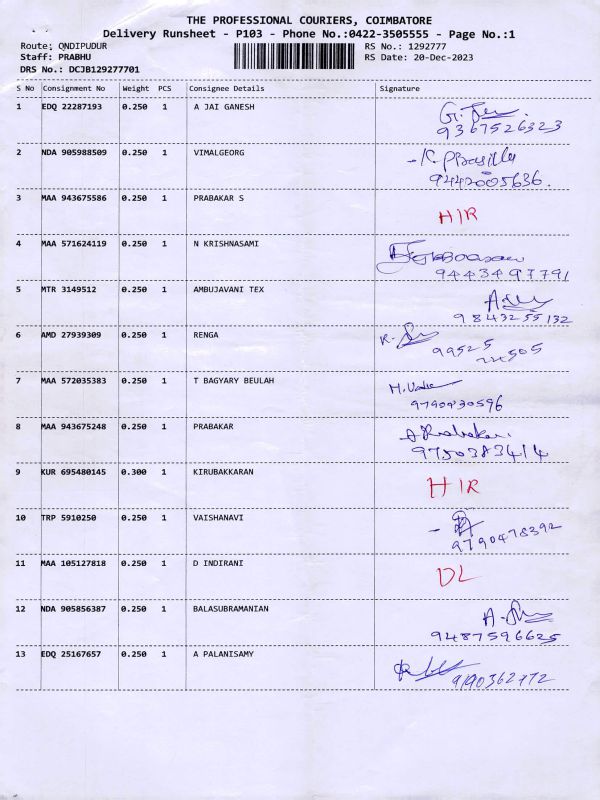 THE PROFESSIONAL COURIERS, COIMBATORE
Delivery Runsheet - P103 - Phone No.:0422-3505555 - Page No.:1
Route: ONDIPUDUR RS No.: 1292777
Staff: PRABHU RS Date: 20-Dec-2023
DRS No.: DCJB129277701
S No Consignment No Weight PCS Consignee Details Signature
1 EDQ 22287193 0.250 1 A JAI GANESH
9367526323
2 NDA 905988509 0.250 1 VIMALGEORG
9442005636.
3 MAA 943675586 0.250 1 PRABAKAR S HIR
4 MAA 571624119 0.250 1 N KRISHNASAMI
9443497791
5 MTR 3149512 0.250 1 AMBUJAVANI TEX
9843255132
6 AMD 27939309 0.250 1 RENGA
99525
7 MAA 572035383 0.250 1 T BAGYARY BEULAH
9790430596
8 MAA 943675248 0.250 1 PRABAKAR A Prabakar.
9750383414
9 KUR 695480145 0.300 1 KIRUBAKKARAN HIR
10 TRP 5910250 0.250 1 VAISHANAVI
9790478392
11 MAA 105127818 0.250 1 D INDIRANI DL
12 NDA 905856387 0.250 1 BALASUBRAMANIAN
9487596625
13 EDQ 25167657 0.250 1 A PALANISAMY